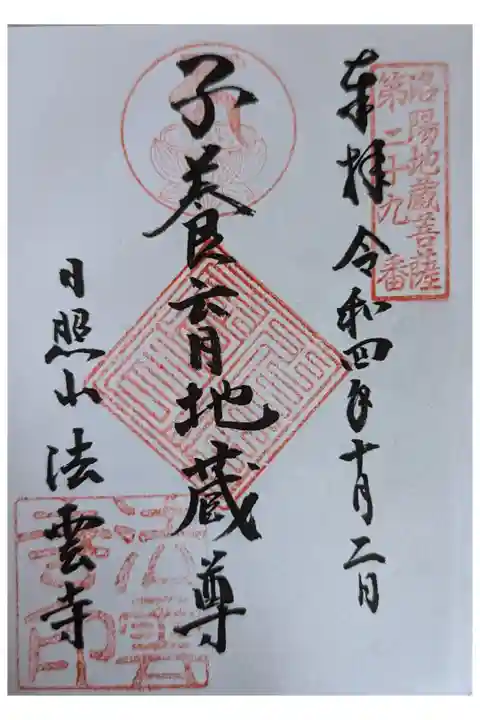 洛陽地蔵菩薩
第二十九番
奉拝 令和四年十月二日
子養六月地蔵尊
日照山 法雲寺